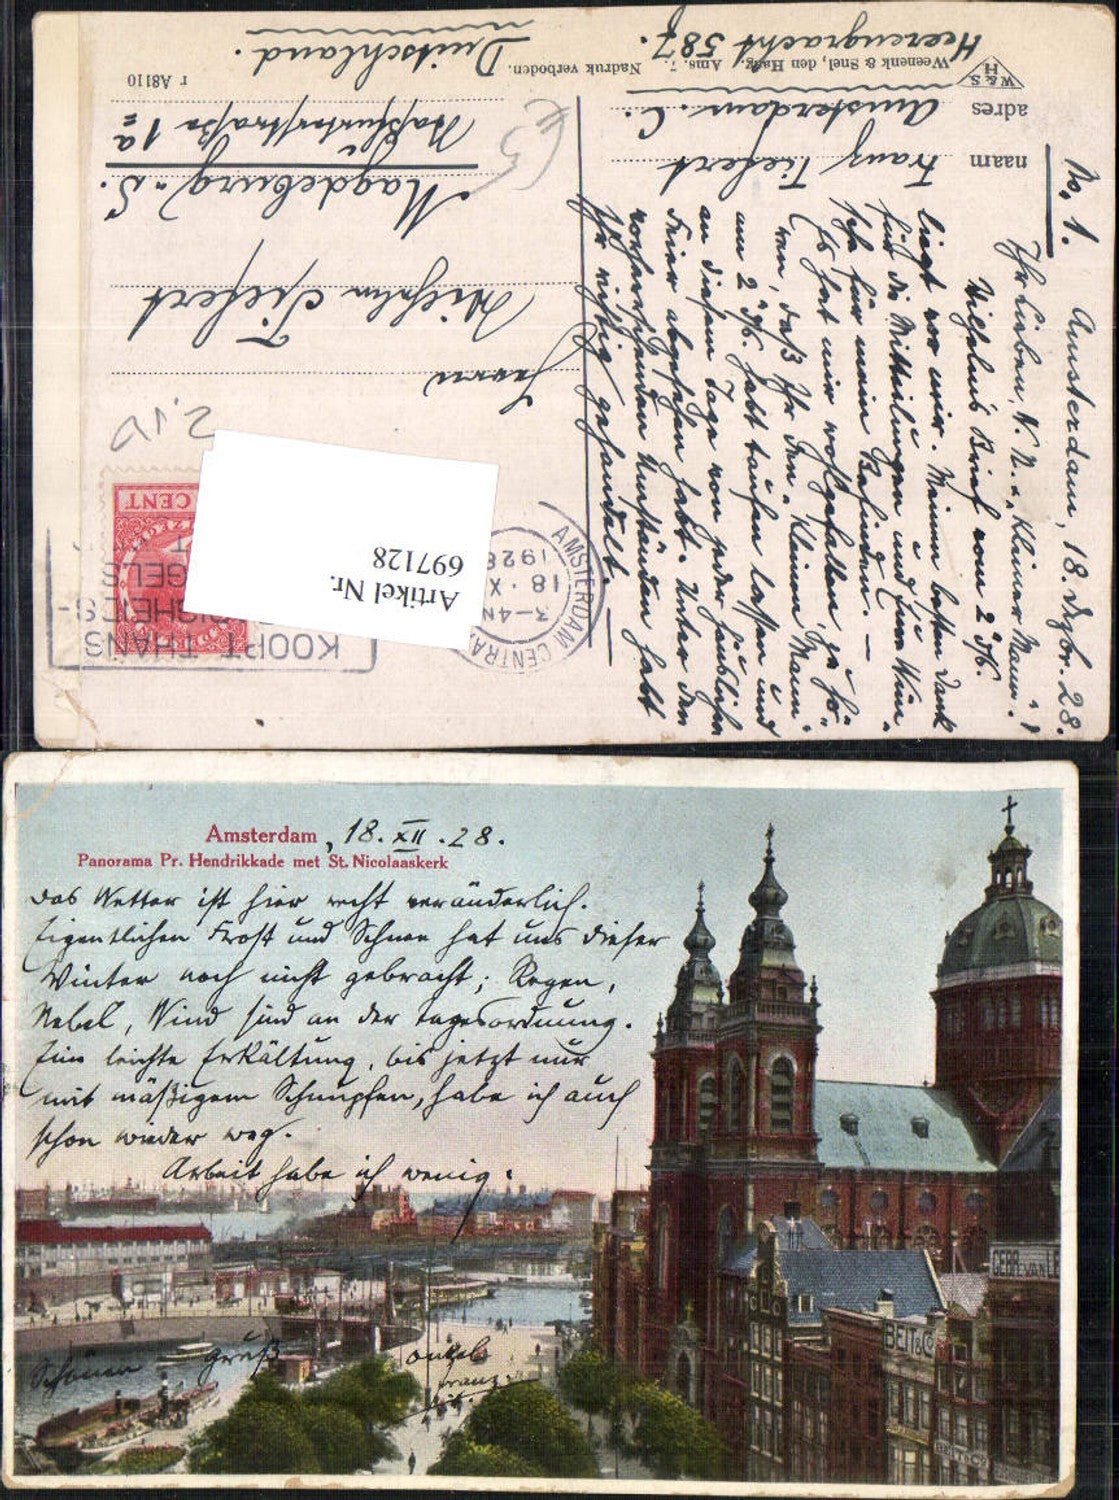 Weenenk & Snel, den Haag. Ams. 7. Nadruk verboden.
r A8110
W & S.
H
naam Franz Tiefert
adres Amsterdam. C.
Heerengracht 587.
Herrn
Wilhelm Tiefert
Magdeburg - S.
Straße 1a
Deutschland.
No. 1. Amsterdam, 18. Dzbr. 28.
Ihr Lieben, N. N. u. "Kleiner Mann"!
Wilhelms Brief vom 2 d/M.
liegt vor mir. Meinen besten Dank
für die Mitteilungen und Eure Wün-
sche für mein Befinden. —
Es hat mir wohlgefallen zu hö-
ren, daß Ihr den "Kleinen Mann"
am 2 d/M. habt taufen lassen und
an diesem Tage von jeder häuslichen
Feier abgesehen habt. Unter den
vorherrschenden Umständen habt
Ihr richtig gehandelt. —
€5
2,10
CENT
KOOPT THANS
AMSTERDAM CENTRAAL
3-4 N
18.X
192
Artikel Nr.
697128
Amsterdam, 18. XII. 28.
Panorama Pr. Hendrikkade met St. Nicolaaskerk
Das Wetter ist hier recht veränderlich.
Eigentlichen Frost und Schnee hat uns dieser
Winter noch nicht gebracht; Regen,
Nebel, Wind sind an der Tagesordnung.
Eine leichte Erkältung, bis jetzt nur
mit mäßigem Schnupfen, habe ich auch
schon wieder weg.
Arbeit habe ich wenig.
Schönen Gruß Onkel
Franz
GEBR. VAN LE
BEIT & Co